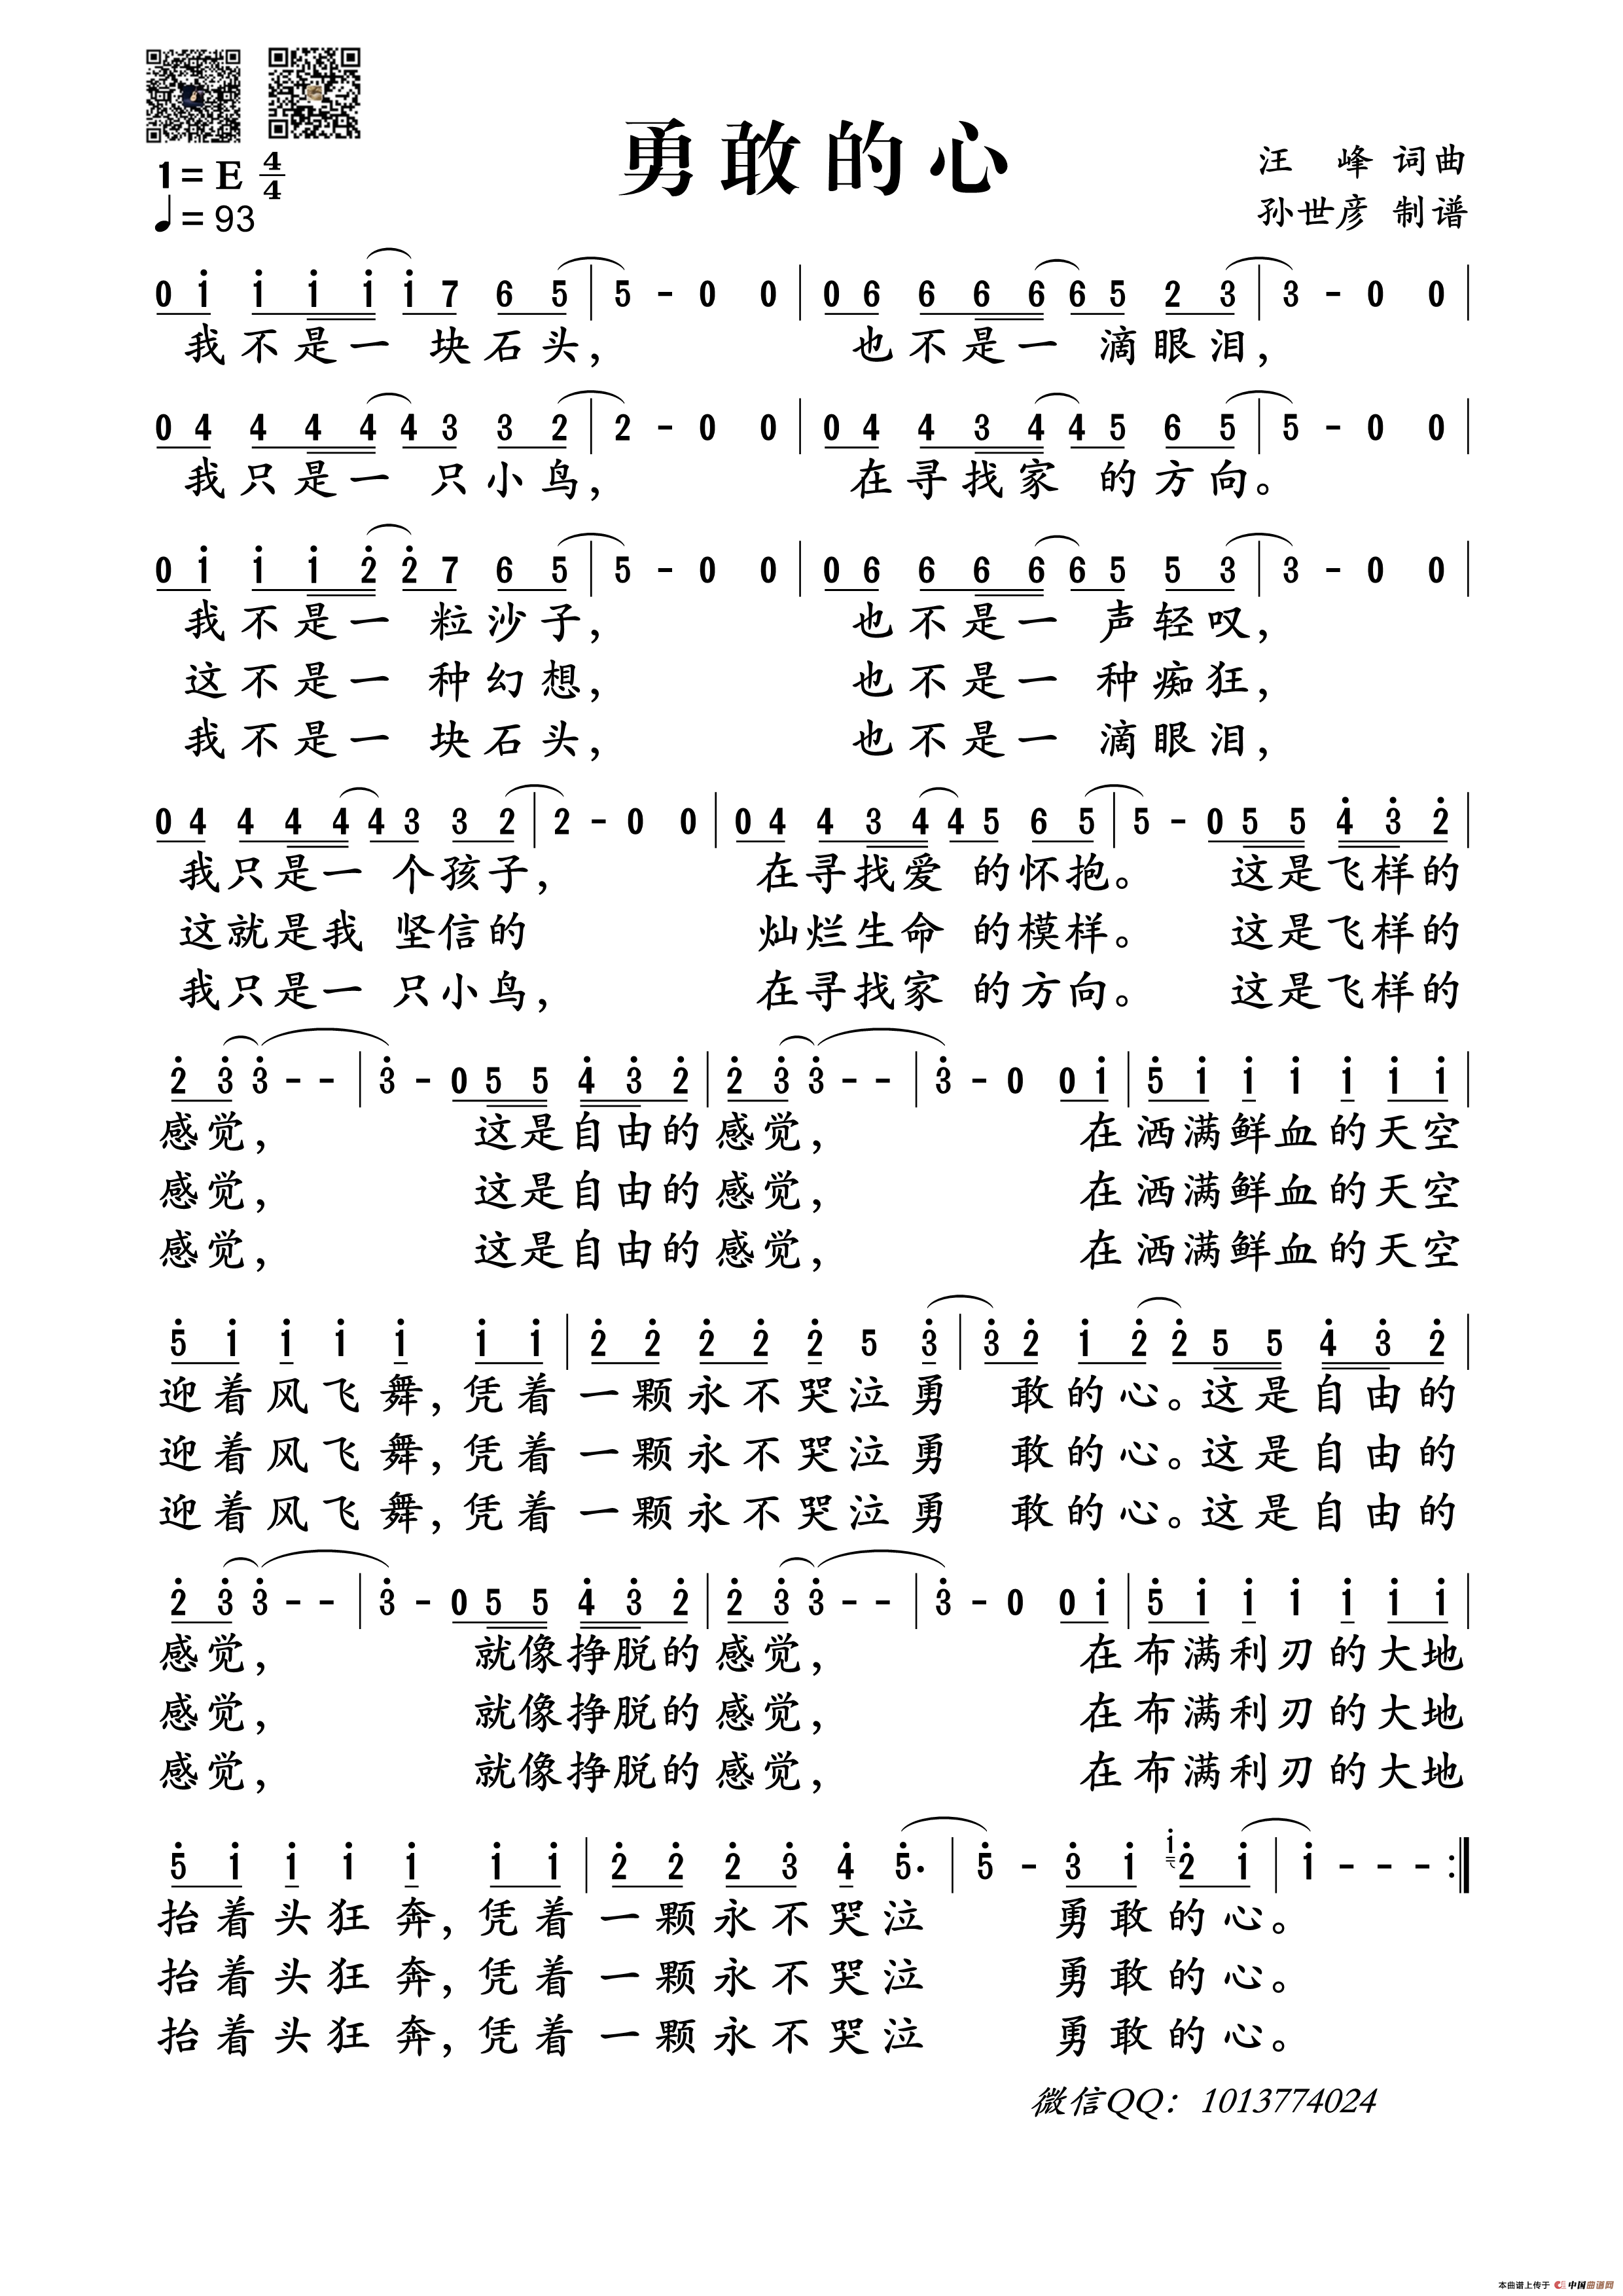 勇敢的心
1=E 4/4
汪 峰 词曲
♩=93
孙世彦 制谱
0 i i i i i 7 6 5 | 5 - 0 0 | 0 6 6 6 6 6 5 2 3 | 3 - 0 0 |
我不是一 块石头, 也不是一 滴眼泪,
0 4 4 4 4 4 3 3 2 | 2 - 0 0 | 0 4 4 3 4 4 5 6 5 | 5 - 0 0 |
我只是一 只小鸟, 在寻找家 的方向。
0 i i i 2̇ 2̇ 7 6 5 | 5 - 0 0 | 0 6 6 6 6 6 5 5 3 | 3 - 0 0 |
我不是一 粒沙子, 也不是一 声轻叹,
这不是一 种幻想, 也不是一 种痴狂,
我不是一 块石头, 也不是一 滴眼泪,
0 4 4 4 4 4 3 3 2 | 2 - 0 0 | 0 4 4 3 4 4 5 6 5 | 5 - 0 5 5 4̇ 3̇ 2̇ |
我只是一 个孩子, 在寻找爱 的怀抱。 这是飞样的
这就是我 坚信的 灿烂生命 的模样。 这是飞样的
我只是一 只小鸟, 在寻找家 的方向。 这是飞样的
2̇ 3̇ 3̇ - - | 3̇ - 0 5 5 4̇ 3̇ 2̇ | 2̇ 3̇ 3̇ - - | 3̇ - 0 0 i | 5̇ i i i i i i |
感觉, 这是自由的 感觉, 在洒满鲜血的天空
感觉, 这是自由的 感觉, 在洒满鲜血的天空
感觉, 这是自由的 感觉, 在洒满鲜血的天空
5̇ i i i i i i | 2̇ 2̇ 2̇ 2̇ 2̇ 5 3̇ | 3̇ 2̇ i 2̇ 2̇ 5 5 4̇ 3̇ 2̇ |
迎着风飞舞,凭着 一颗永不哭泣勇 敢的心。这是自由的
迎着风飞舞,凭着 一颗永不哭泣勇 敢的心。这是自由的
迎着风飞舞,凭着 一颗永不哭泣勇 敢的心。这是自由的
2̇ 3̇ 3̇ - - | 3̇ - 0 5 5 4̇ 3̇ 2̇ | 2̇ 3̇ 3̇ - - | 3̇ - 0 0 i | 5̇ i i i i i i |
感觉, 就像挣脱的 感觉, 在布满利刃的大地
感觉, 就像挣脱的 感觉, 在布满利刃的大地
感觉, 就像挣脱的 感觉, 在布满利刃的大地
5̇ i i i i i i | 2̇ 2̇ 2̇ 3̇ 4̇ 5̇· | 5̇ - 3̇ i i 2̇ i | i - - - :‖
抬着头狂奔,凭着 一颗永不哭泣 勇敢的心。
抬着头狂奔,凭着 一颗永不哭泣 勇敢的心。
抬着头狂奔,凭着 一颗永不哭泣 勇敢的心。
微信QQ：1013774024
本曲谱上传于 中国曲谱网